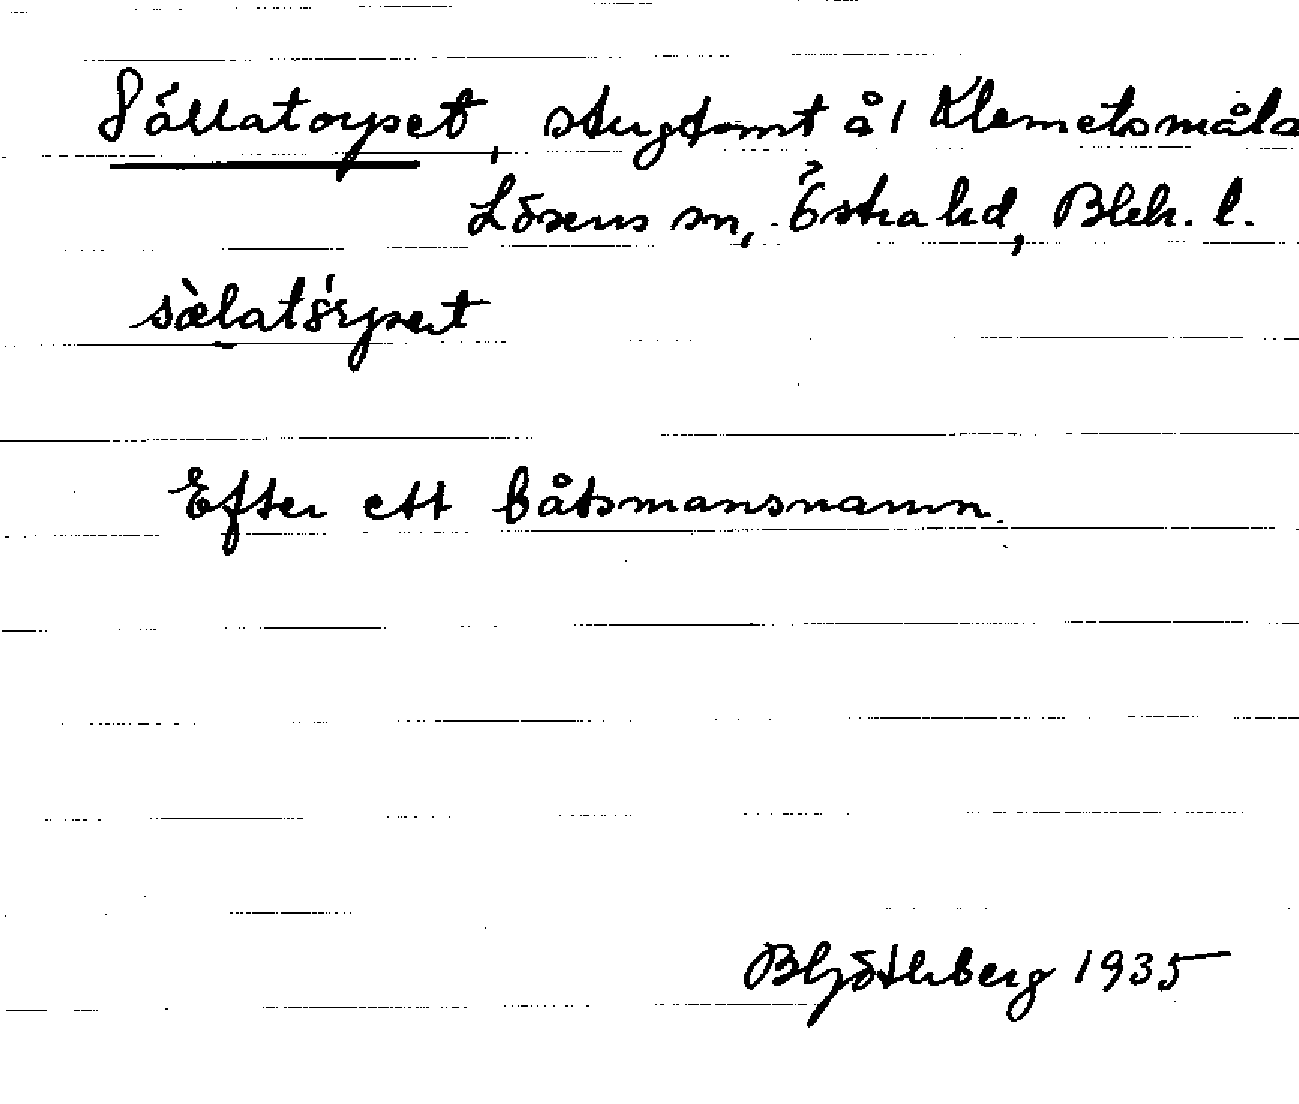 Sällatorpet, stugtomt å 1 Klemetsmåla
Lösens sn, Östra hd, Blek. l.
sὰlatórpet
Efter ett båtsmansnamn.
BHjörthberg 1935